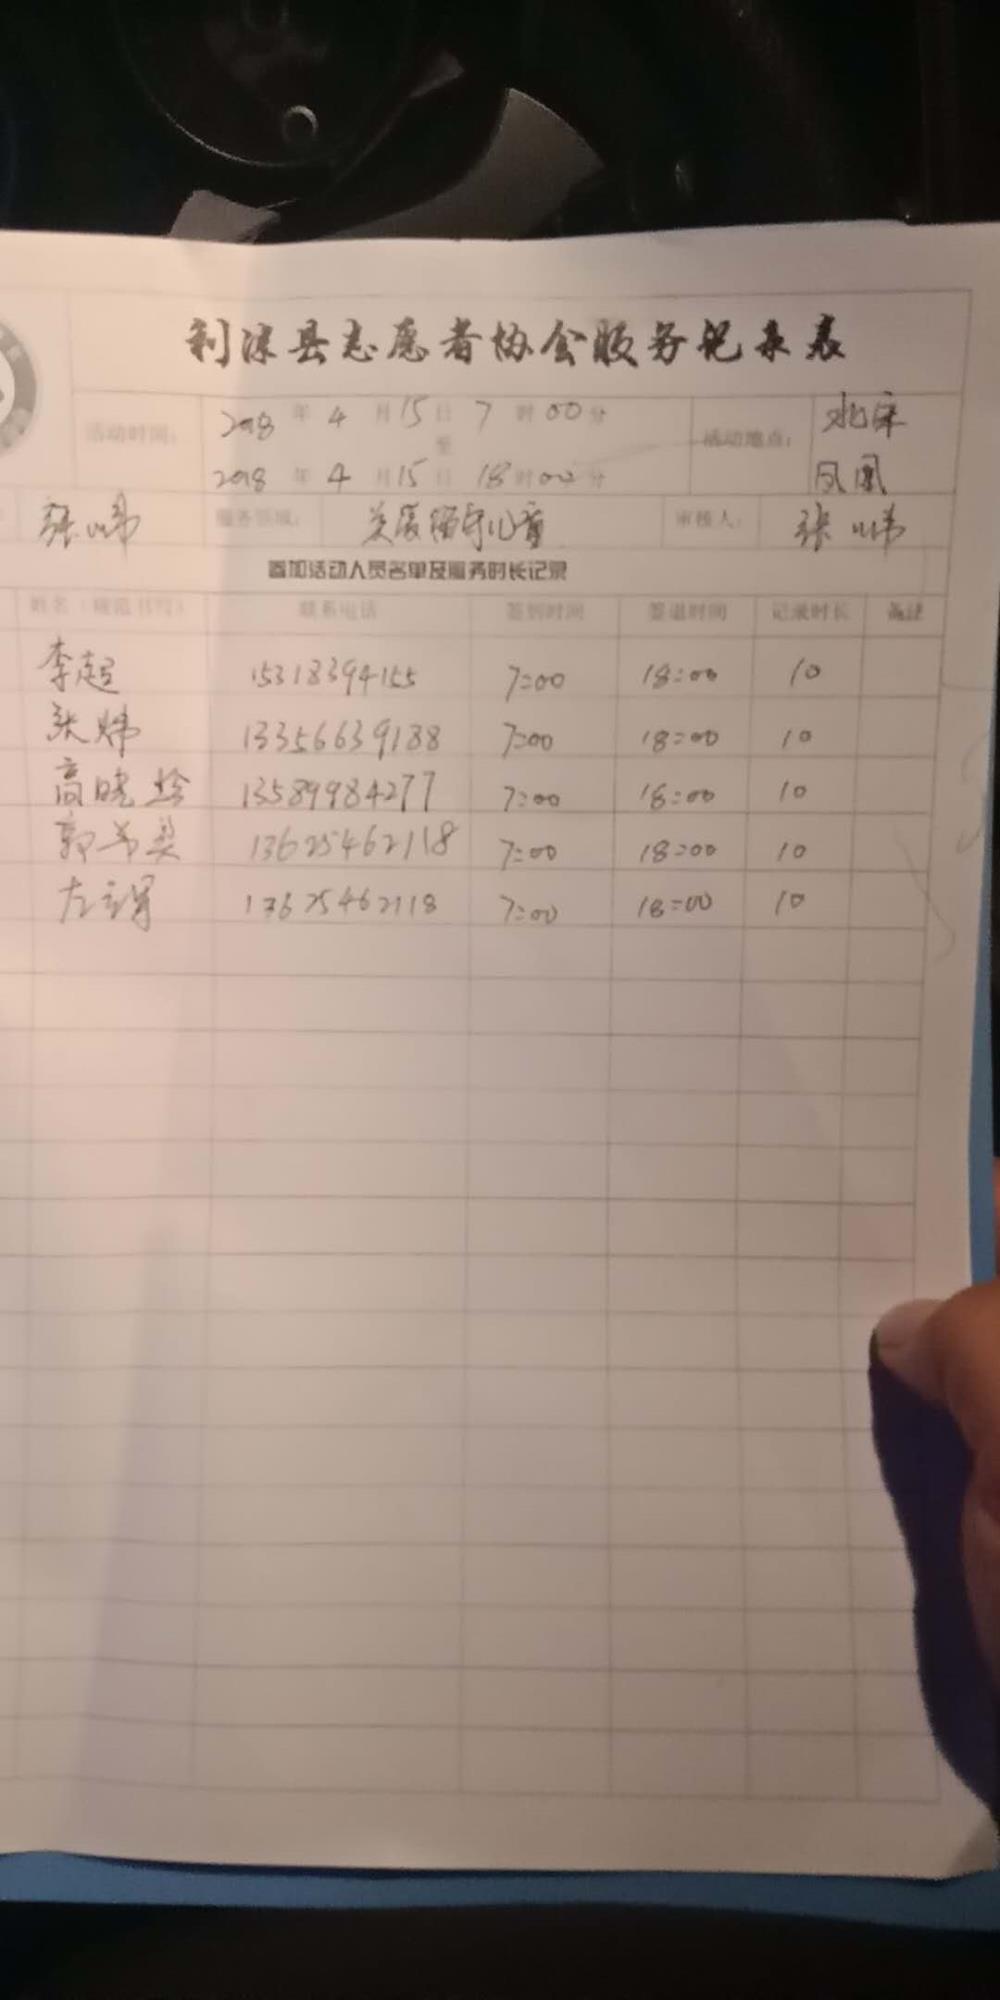 利津县志愿者协会服务记录表
活动时间: 2018 年 4 月 15 日 7 时 00 分 至 2018 年 4 月 15 日 18 时 00 分 活动地点: 北宋 凤凰
张炜 服务领域: 关爱留守儿童 审核人: 张炜
参加活动人员名单及服务时长记录
姓名(规范书写) 联系电话 签到时间 签退时间 记录时长 备注
李超 15318394155 7:00 18:00 10
张炜 13356639188 7:00 18:00 10
高晓 13589984277 7:00 18:00 10
郭 13625462118 7:00 18:00 10
左 13625462118 7:00 18:00 10